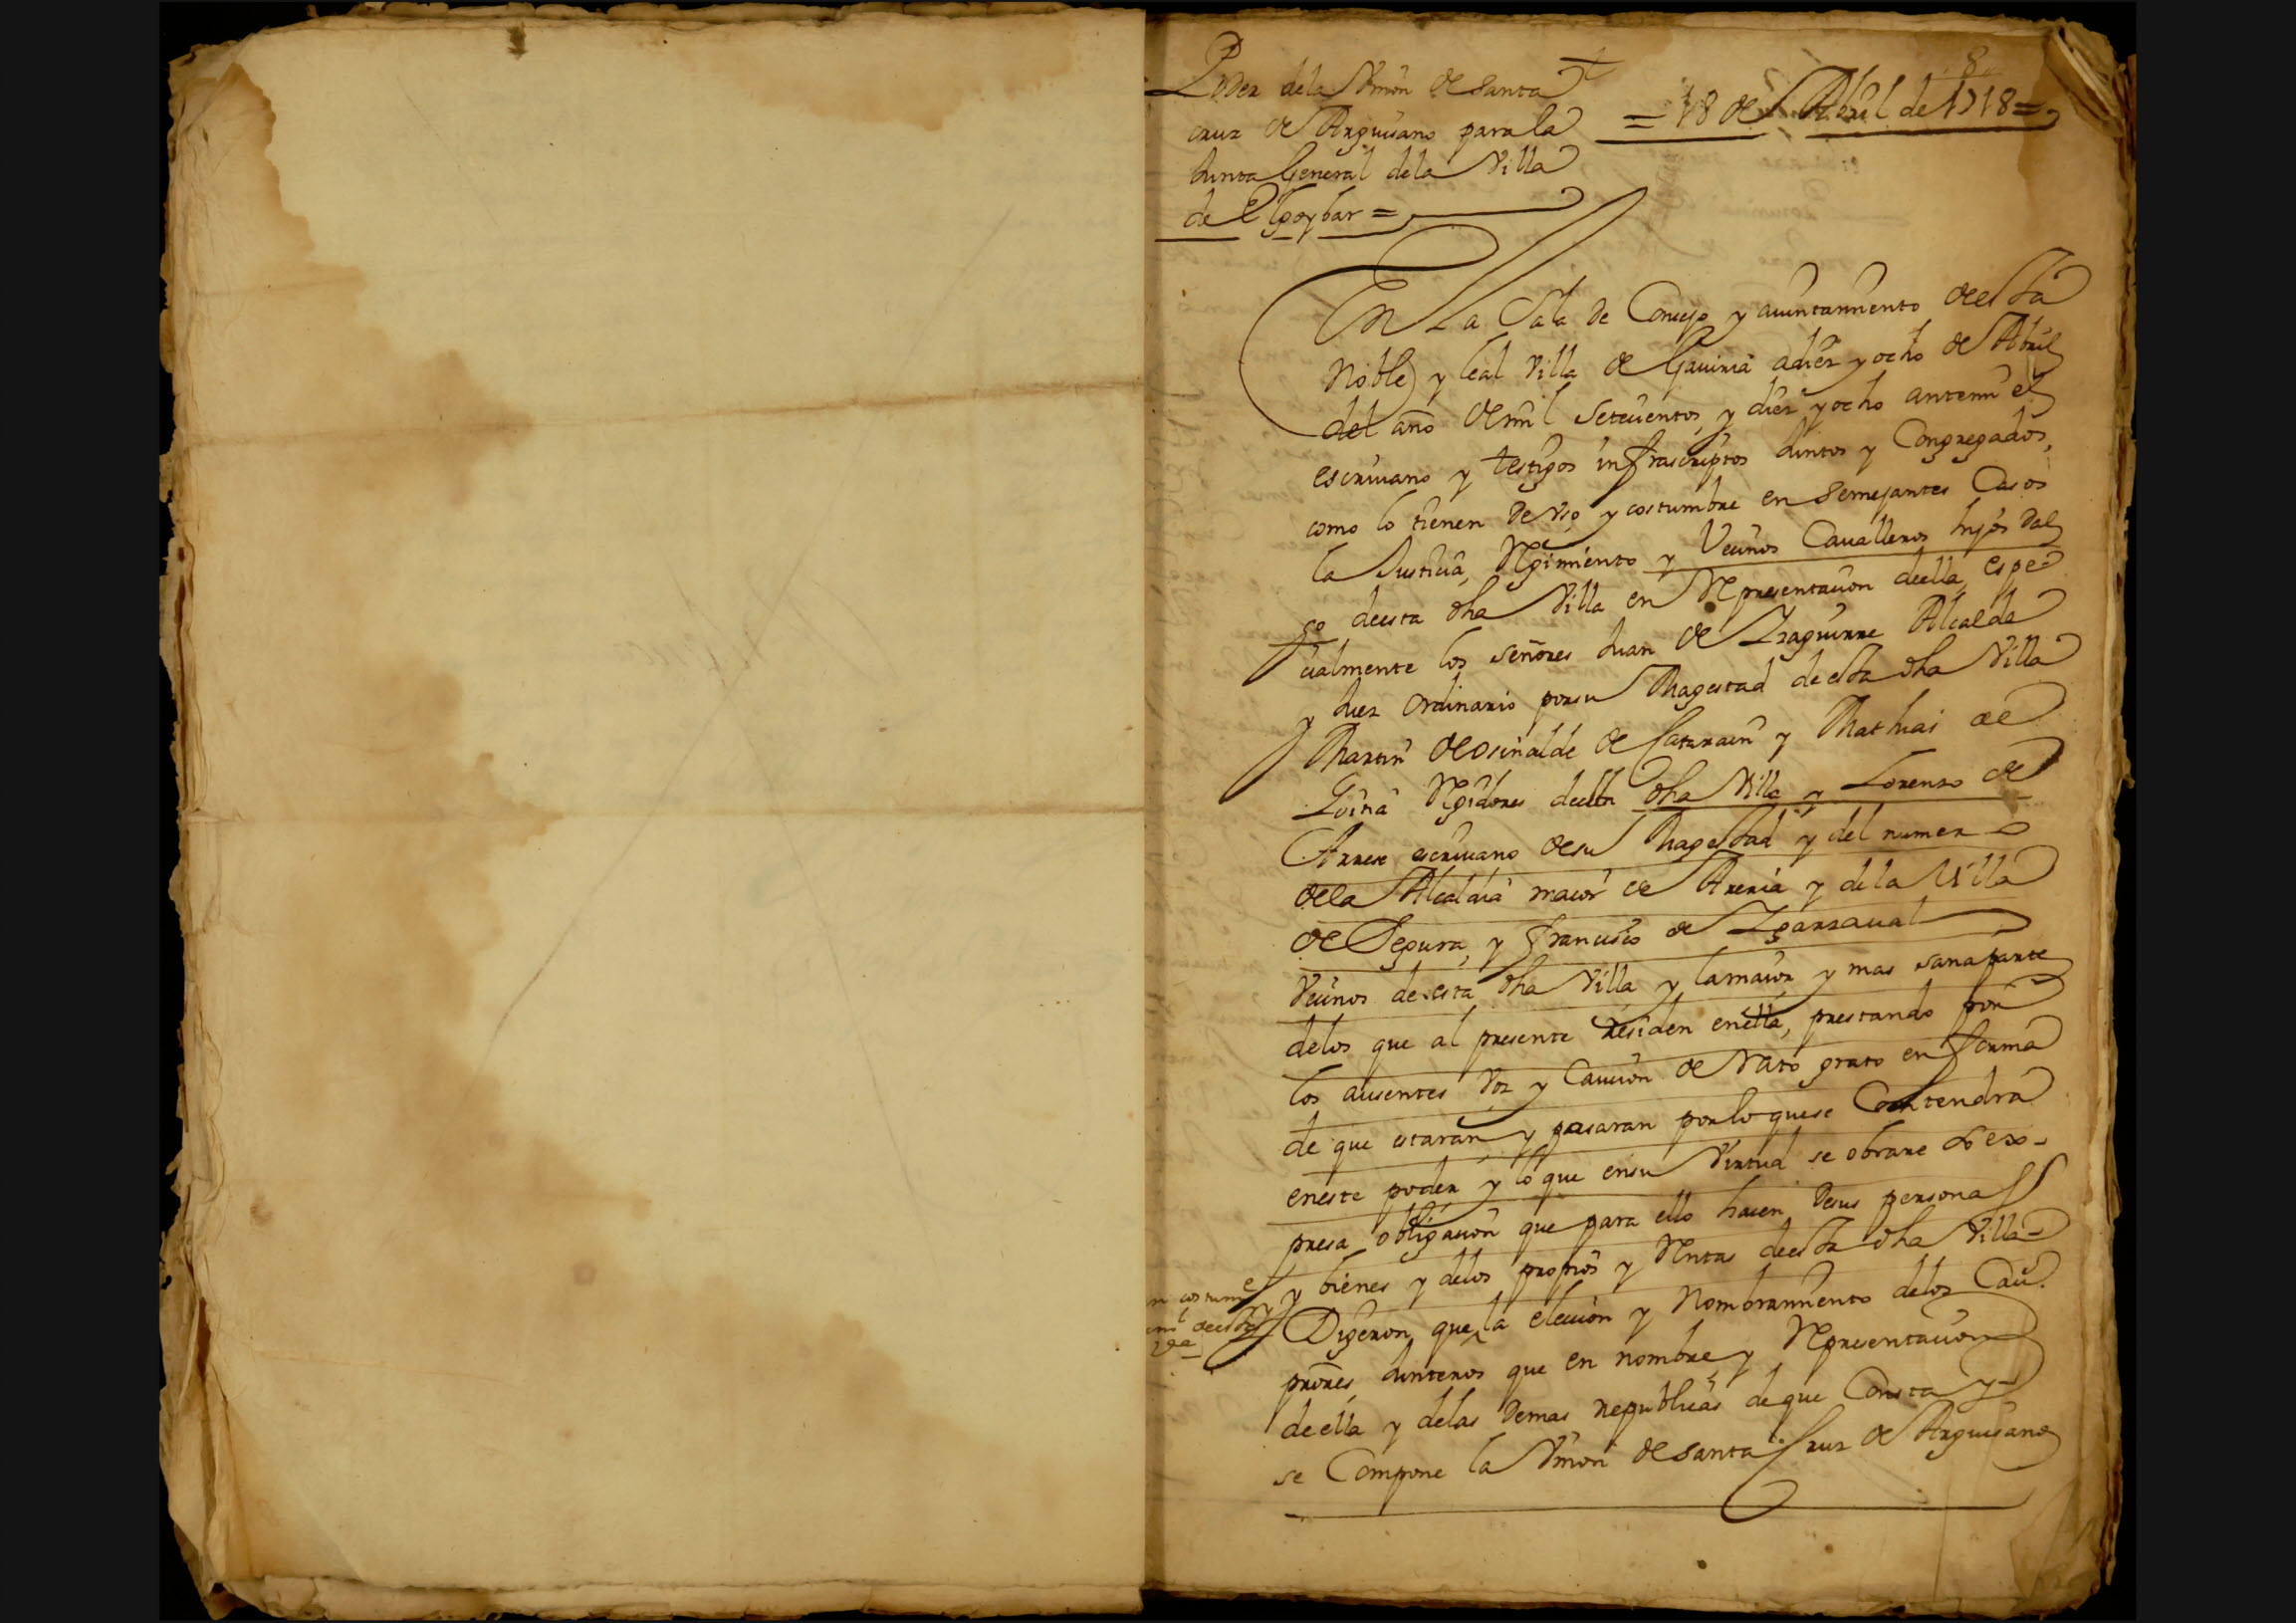 8
Poder dela Vnion de santa
cruz de Arguisano para la
Junta General dela Villa
de Elgoybar =
= 18 de Abril de 1718 =
En La Sala de Concejo y aiuntamiento de esta
Noble y leal Villa de Gaviria a diez y ocho de Abril
del año de mil setecientos, y diez y ocho antemi el
escriuano y testigos infrascriptos Juntos y Congregados,
como lo tienen de vso y costumbre en semejantes Casos
la Justicia, Regimiento y Vecinos Caualleros hijos dal
go deesta dha Villa en Representacion deella, espe
cialmente los señores Juan de Izaguirre Alcalde
y Juez Ordinario por su Magestad de esta dha Villa
Martin de Osinalde de Catarain y Mathias de
Goina Regidores deella dha Villa y Lorenzo de
Arrese escriuano de su Magestad y del numero
dela Alcaldia maior de Areria y dela Villa
de Segura, y Francisco de Igarzaual
Vecinos de esta dha Villa y la maior y mas sana parte
delos que al presente residen enella, prestando por
los ausentes Voz y Caucion de rato grato en forma
de que estaran y pasaran por lo que se Contendra
eneste poder y lo que en su Virtud se obrare So ex-
presa obligacion que para ello hacen de sus personas
y bienes y delos propios y Rentas deesta dha Villa
Digeron, que la eleccion y Nombramiento delos Cau.
prores Junteros que en nombre y Representacion
de ella y delas demas republicas de que Consta y
se Compone la Vnion de santa Cruz de Arguisano